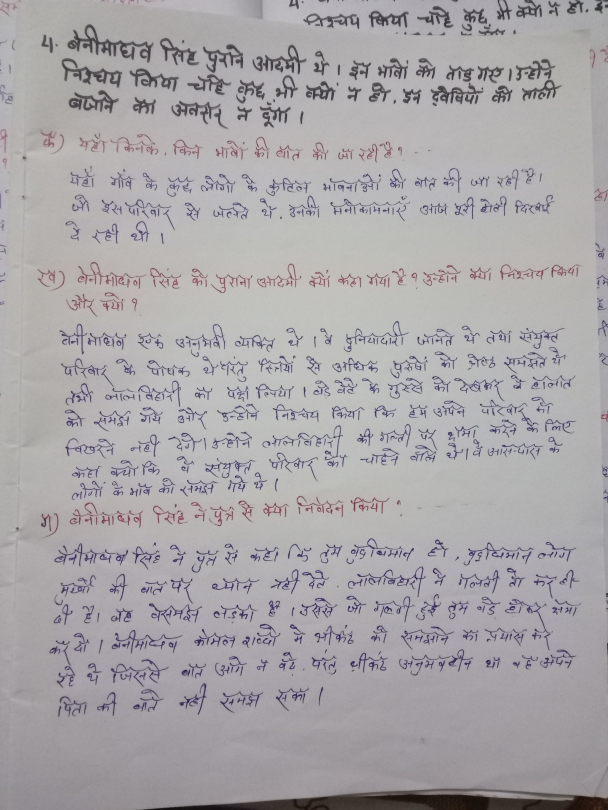 निश्चय किया चाहे कुछ भी क्यों न हो, इन
4. बेनीमाधव सिंह पुराने आदमी थे। इन भावों को ताड़ गए। उन्होंने
निश्चय किया चाहे कुछ भी क्यों न हो, इन द्वेषियों को ताली
बजाने का अवसर न दूँगा।
क) यहाँ किनके, किन भावों की बात की जा रही है?
यहाँ गाँव के कुछ लोगों के कुटिल भावनाओं की बात की जा रही है।
जो इस परिवार से जलते थे. उनकी मनोकामनाएँ आज पूरी होती दिखाई
दे रही थी।
ख) बेनीमाधव सिंह को पुराना आदमी क्यों कहा गया है? उन्होंने क्या निश्चय किया
और क्यों?
बेनीमाधव एक अनुभवी व्यक्ति थे। वे दुनियादारी जानते थे तथा संयुक्त
परिवार के पोषक थे परंतु स्त्रियों से अधिक पुरुषों को श्रेष्ठ समझते थे
तभी लालबिहारी का पक्ष लिया। बड़े बेटे के गुस्से को देखकर वे हालात
को समझ गये और उन्होंने निश्चय किया कि हम अपने परिवार को
बिखरने नहीं देंगे। उन्होंने लालबिहारी की गलती पर क्षमा करने के लिए
कहा क्योंकि वे संयुक्त परिवार को चाहने वाले थे। वे आस-पास के
लोगों के भाव को समझ गये थे।
ग) बेनीमाधव सिंह ने पुत्र से क्या निवेदन किया?
बेनीमाधव सिंह ने पुत्र से कहा कि तुम बुद्धिमान हो, बुद्धिमान लोग
मूर्खों की बात पर ध्यान नहीं देते. लालबिहारी ने गलती तो कर ही
दी है। वह बेसमझ लड़का है। उससे जो गलती हुई तुम बड़े होकर क्षमा
कर दो। बेनीमाधव कोमल शब्दों में श्रीकंठ को समझाने का प्रयास कर
रहे थे जिससे बात आगे न बढ़े. परंतु श्रीकंठ अनुभवहीन था वह अपने
पिता की बातें नहीं समझ सका।